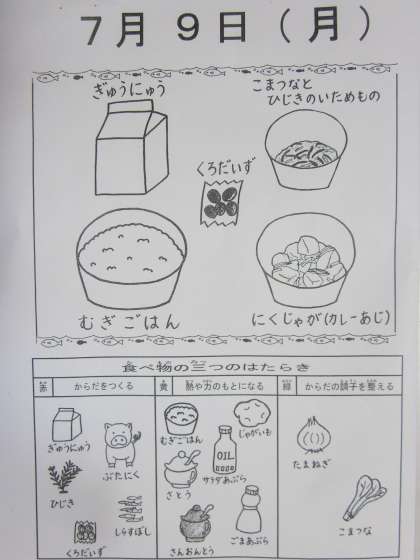 7月 9日 (月)
ぎゅうにゅう
こまつなと
ひじきのいためもの
くろだいず
むぎごはん
にくじゃが(カレーあじ)
食べ物の三つのはたらき
赤 からだをつくる 黄 熱や力のもとになる 緑 からだの調子を整える
ぎゅうにゅう
ぶたにく
ひじき
しらすぼし
くろだいず
むぎごはん
じゃがいも
OIL
さとう
サラダあぶら
さんおんとう
ごまあぶら
たまねぎ
こまつな